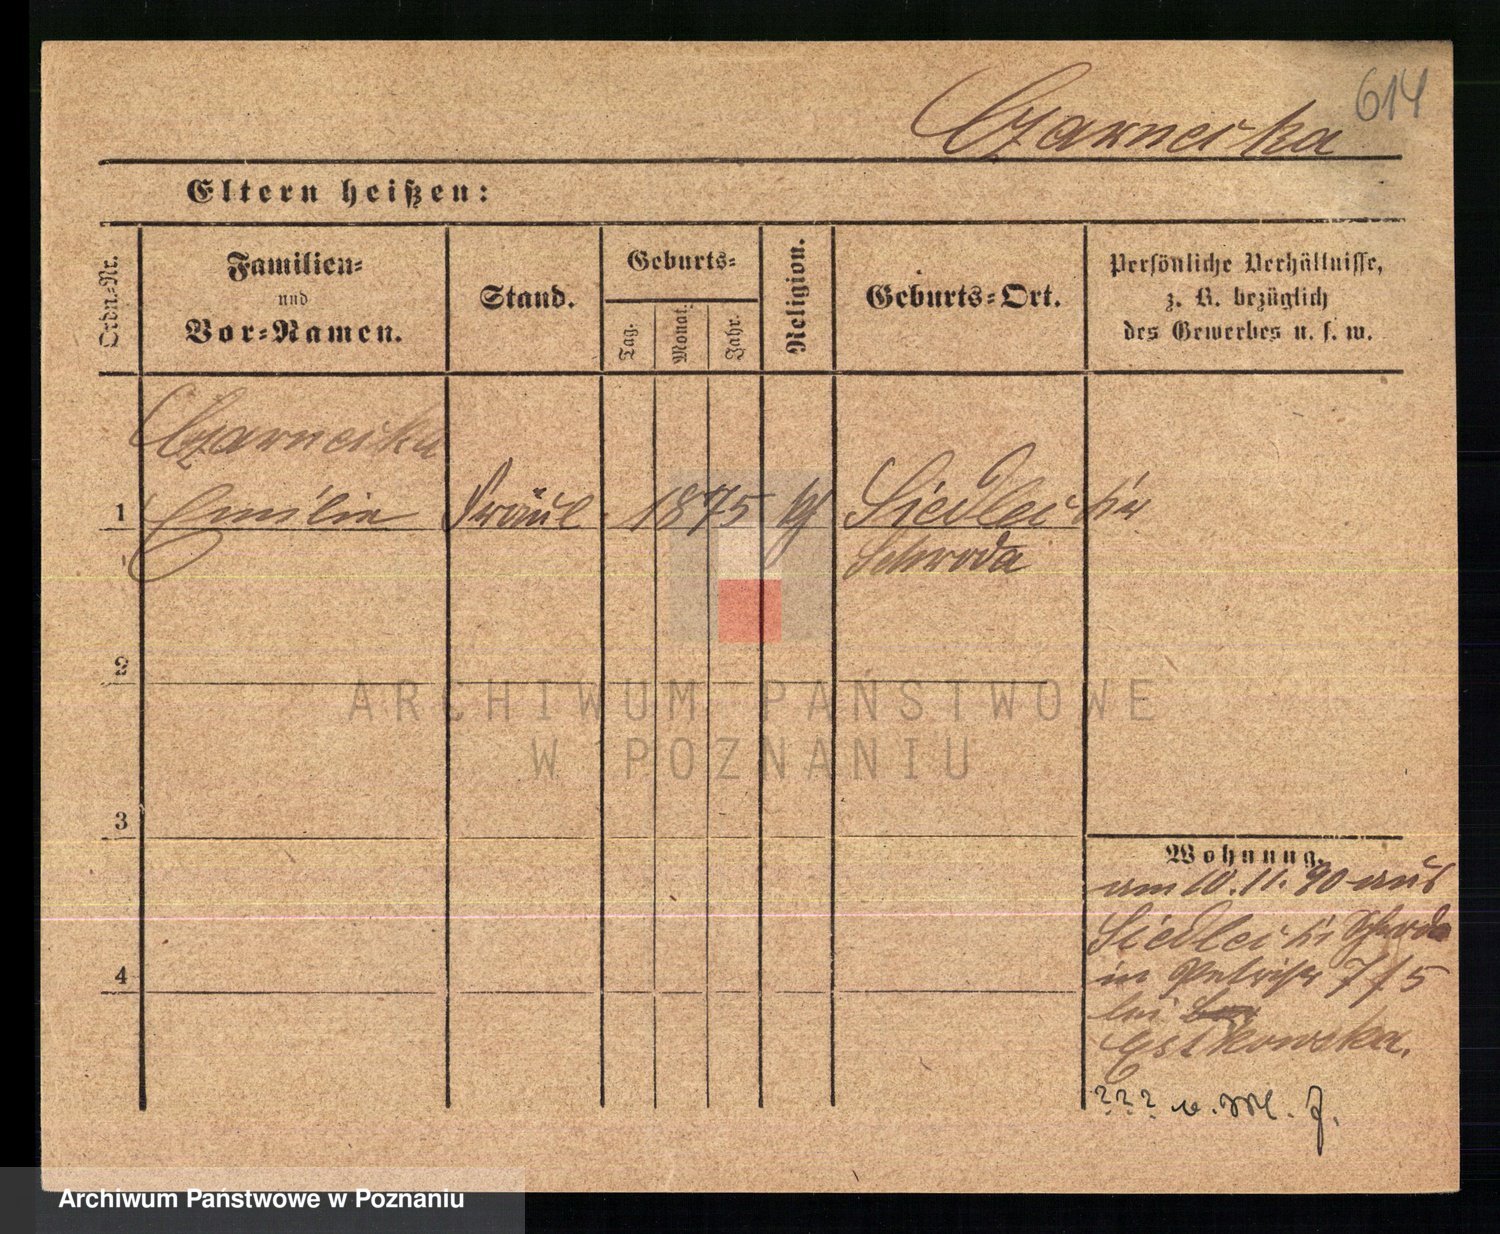 614
Czarnecka
Eltern heißen:
Ordn.-Nr.
Familien-
und
Vor-Namen.
Stand.
Geburts-
Tag.
Monat.
Jahr.
Religion.
Geburts-Ort.
Persönliche Verhältnisse,
z. B. bezüglich
des Gewerbes u. s. w.
Czarnecka
1 Emilie Fräul 1875 Siedlec
Schroda
2
3
4
Wohnung.
am 10.11.90 aus
Siedlec Schroda
in 7/5
bei
Estkowska.
? ? ? v. J.
ARCHIWUM PAŃSTWOWE
W POZNANIU
Archiwum Państwowe w Poznaniu